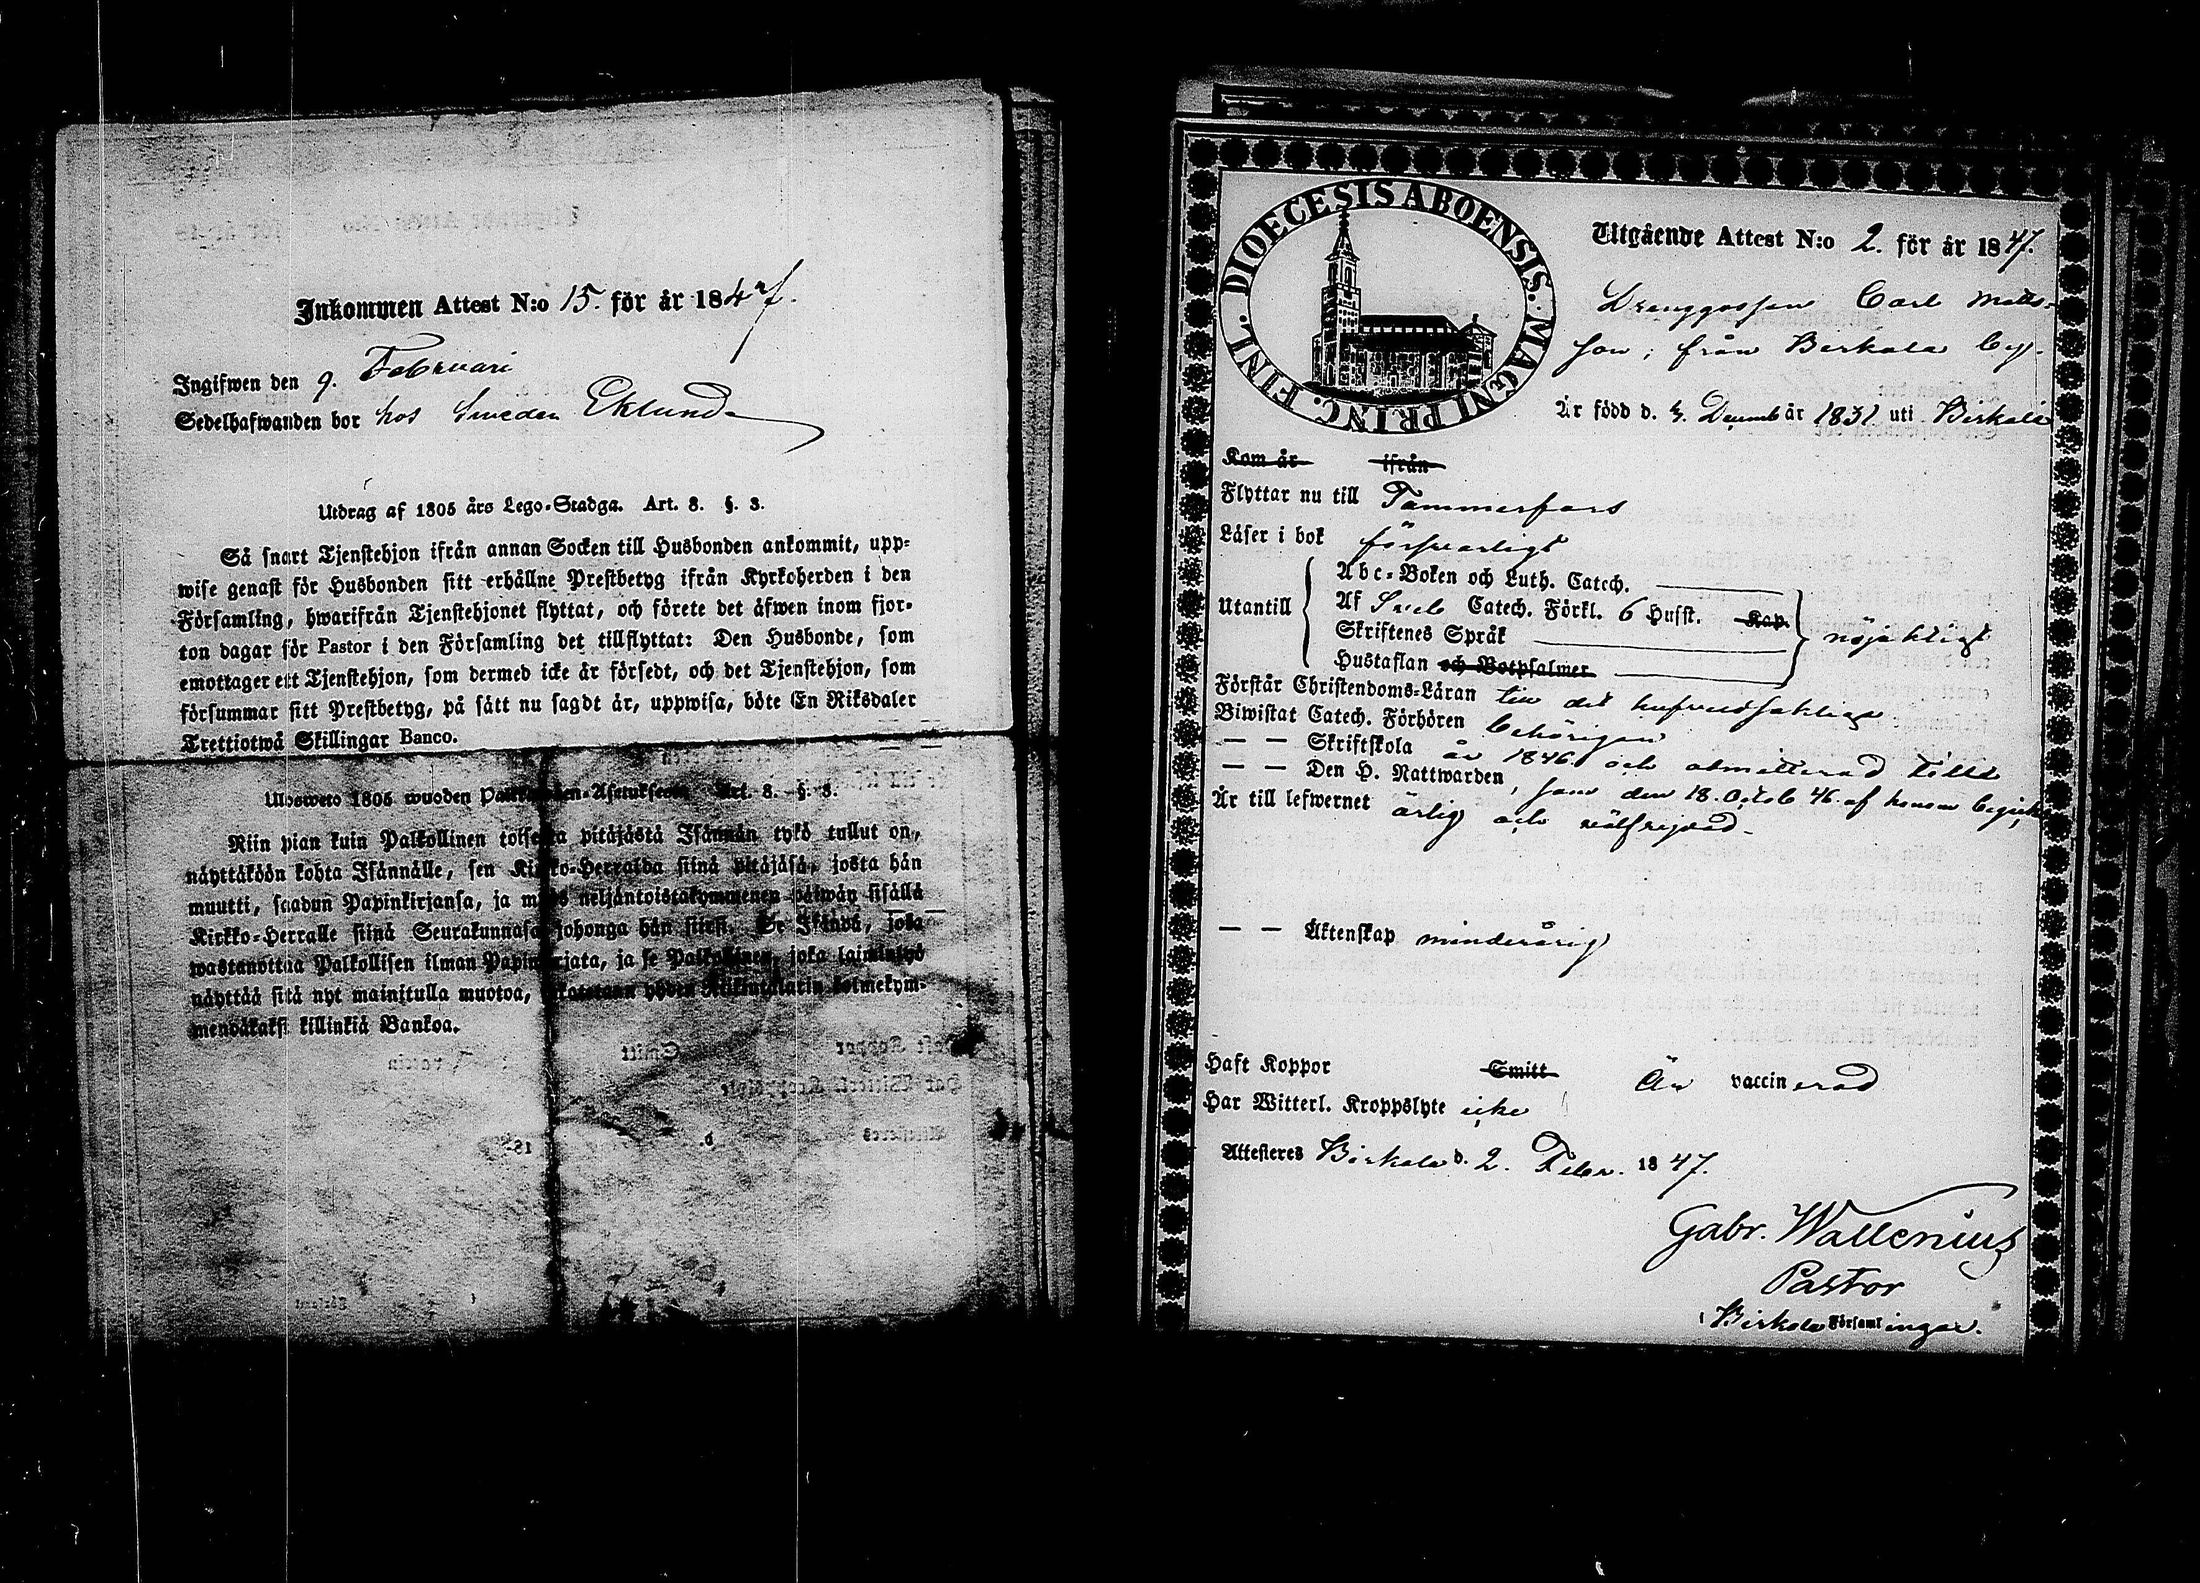 Inkommen Attest N:o 15. för år 1847.
Ingifwen den 9. Februari
Sedelhafwanden bor hos Smeden Eklund
Utdrag af 1805 års Lego-Stadga. Art. 8. §. 3.
Så snart Tjenstehjon ifrån annan Socken till Husbonden ankommit, upp-
wise genast för Husbonden sitt erhållne Prestbetyg ifrån Kyrkoherden i den
Församling, hwarifrån Tjenstehjonet flyttat, och förete det äfwen inom fjor-
ton dagar för Pastor i den Församling det tillflyttat: Den Husbonde, som
emottager ett Tjenstehjon, som dermed icke är försedt, och det Tjenstehjon, som
försummar sitt Prestbetyg, på sätt nu sagdt är, uppwisa, böte En Riksdaler
Trettiotwå Skillingar Banco.
Ulosweto 1805 wuoden Art. 8. §. 3.
Niin pian kuin Palkollinen pitäjästä Isännän tykö tullut on,
näyttäköön kohta Isännälle, sen siinä pitäjäsä, josta hän
muutti, saadun Papinkirjansa, ja neljäntoistakymmenen päiwän sisällä
Kirkko-Herralle siinä Seurakunnasa johonga hän siirsi. Se Isändä, joka
wastanottaa Palkollisen ilman ja se Palkollinen, joka laiminlyö
näyttää sitä nyt mainitulla muotoa, yhden Riksidalarin kolmekym-
mendäkaksi killinkiä Bankoa.
DIOECESIS ABOENSIS. MAGNI PRINC. FINL.
Utgående Attest N:o 2. för år 1847.
Drenggossen Carl Matts-
son, från Birkala by.
Är född d. Decemb år 1831 uti Birkala
Kom år ifrån
Flyttar nu till Tammerfors
Läser i bok försvarligt
Abc-Boken och Luth. Catech.
Utantill Af Sveb Catech. Förkl. 6 Husst. Kap. nöjaktigt
Skriftenes Språk
Hustaflan och Botpsalmer
Förstår Christendoms-Läran till det hufvudsakliga
Biwistat Catech. Förhören behörigen
— — Skriftskola år 1846 och admitterad till
— — Den H. Nattwarden, som den 18. Octob 46. af honom begicks,
Är till lefwernet ärlig och välfrejdad.
— — Äktenskap minderårig
Haft Koppor Smitt Är vaccinerad
Har Witterl. Kroppslyte icke
Attesteres Birkala d. 2. Febr. 1847.
Gabr. Wallenius
Pastor
i Birkala Församlingar.